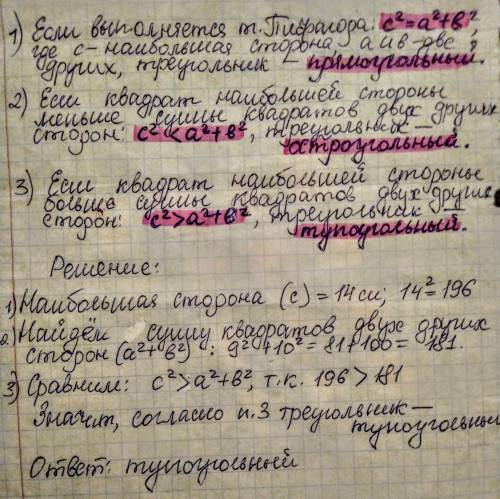 1) Если выполняется т. Пифагора: c²=a²+b²,
где c - наибольшая сторона, a и b - две
других, треугольник - прямоугольный.
2) Если квадрат наибольшей стороны
меньше суммы квадратов двух других
сторон: c²<a²+b², треугольник -
остроугольный.
3) Если квадрат наибольшей стороны
больше суммы квадратов двух других
сторон: c²>a²+b², треугольник -
тупоугольный.
Решение:
1) Наибольшая сторона (c) = 14 см; 14²=196
2) Найдём сумму квадратов двух других
сторон (a²+b²): 9²+10²=81+100=181.
3) Сравним: c²>a²+b², т.к. 196>181
Значит, согласно п.3 треугольник -
тупоугольный
Ответ: тупоугольный